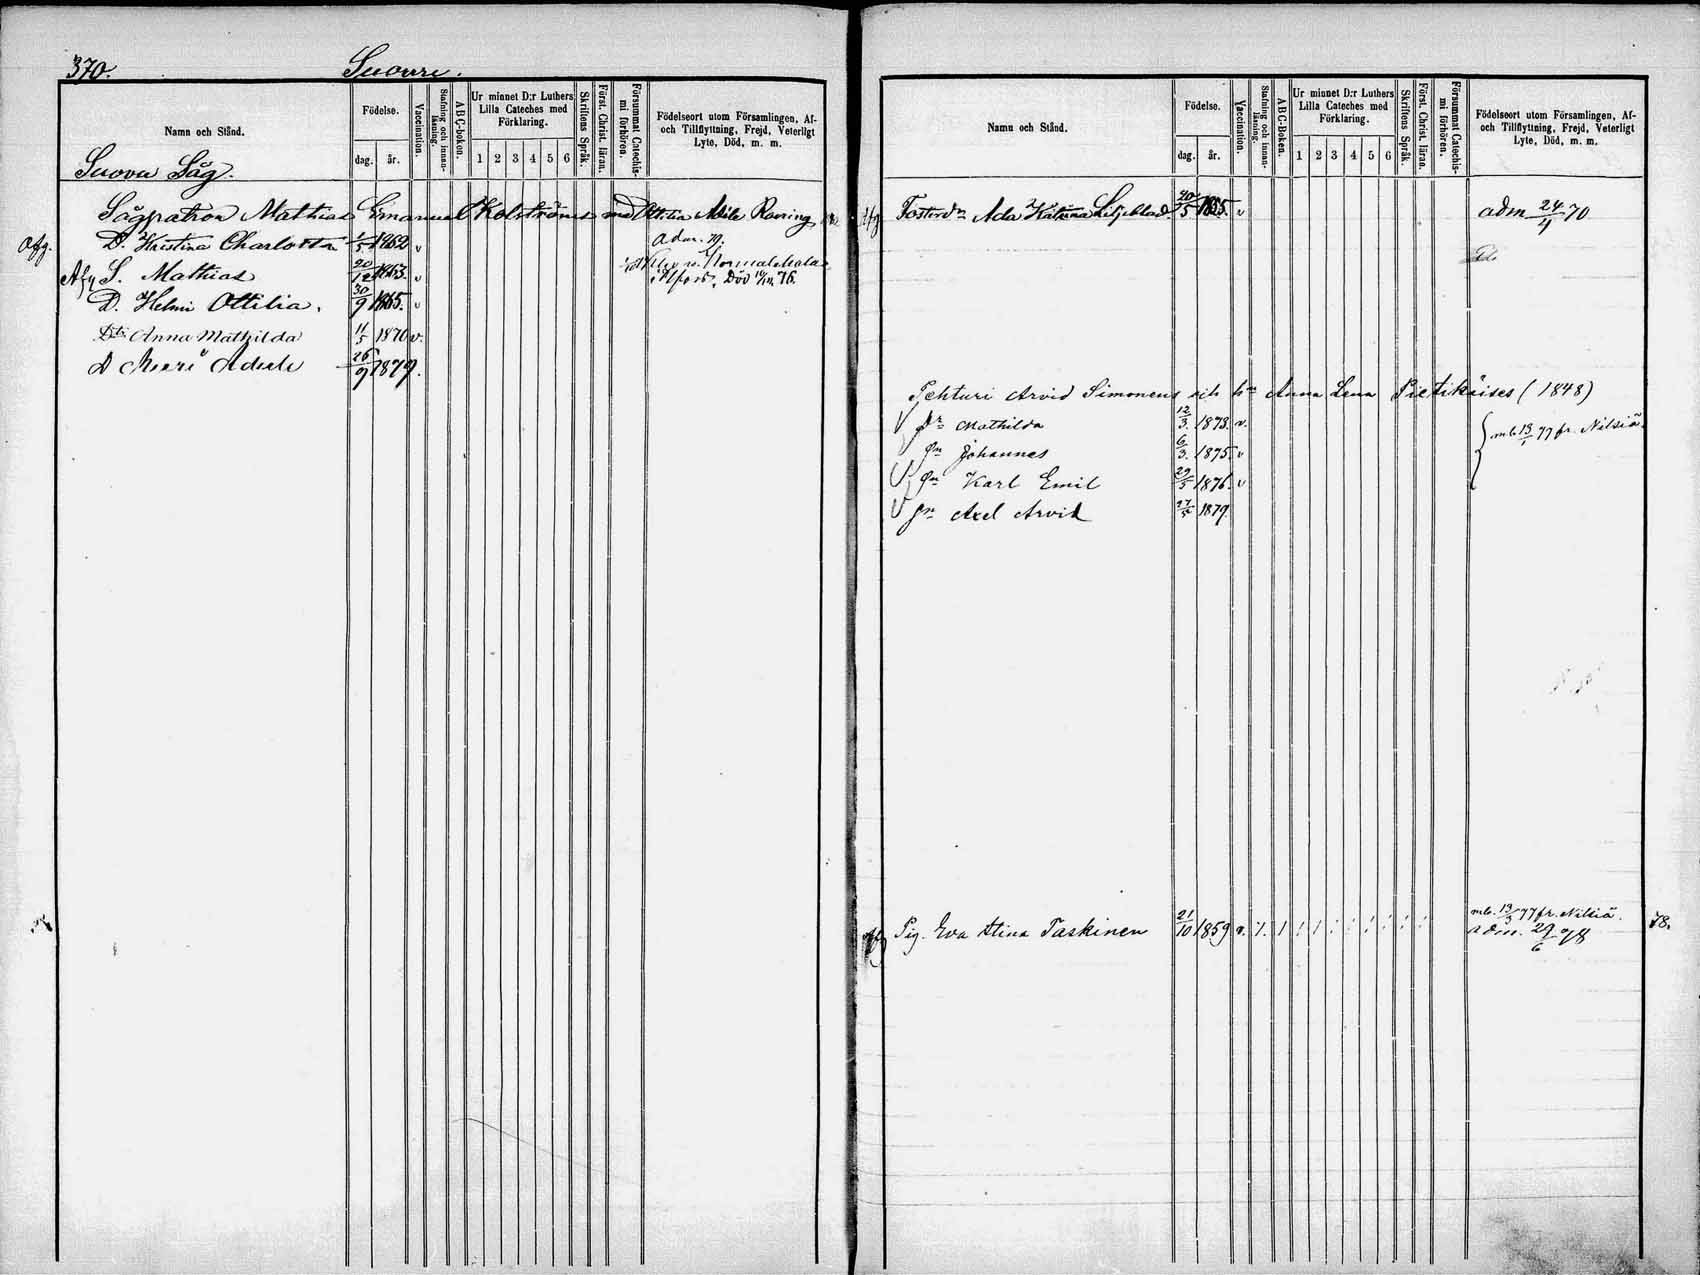 370. Suovu.
Namn och Stånd.
Födelse.
dag. år.
Vaccination.
Stafning och innanläsning.
ABC-boken.
Ur minnet D:r Luthers Lilla Cateches med Förklaring.
1 2 3 4 5 6
Skriftens Språk.
Först. Christ. läran.
Försummat Catechismi förhören.
Födelseort utom Församlingen, Af- och Tillflyttning, Frejd, Veterligt Lyte, Död, m. m.
Suovu Såg.
Sågpatron Mathias Emanuel Kolströms med Ottilia Adile
Afg. D. Kristina Charlotta 1/5 1862 v adm. 79.
Afg S. Mathias 20/12 1863. v Normalskola
Död 76.
D. Helmi Ottilia. 30/9 1865. v
Anna Mathilda 11/5 1870 v.
D Meeri Adeele 26/9 1879.
Namn och Stånd.
Födelse.
dag. år.
Vaccination.
Stafning och innanläsning.
ABC-Boken.
Ur minnet D:r Luthers Lilla Cateches med Förklaring.
1 2 3 4 5 6
Skriftens Språk.
Först. Christ. läran.
Försummat Catechismi förhören.
Födelseort utom Församlingen, Af- och Tillflyttning, Frejd, Veterligt Lyte, Död, m. m.
Afg Fosterdr Ada Katrina Liljeblad 20/5 1855. v adm 24/4 70
Pehturi Arvid Simonens och hn Anna Lena Pietikäises (1848)
Dr Mathilda 12/3. 1873. v.
mb 13/1 77 fr. Nilsiä.
Pn Johannes 6/3. 1875. v
Pn Karl Emil 29/5 1876. v
Pn Axel Arvid 27/5 1879.
Afg Pig. Eva Stina Taskinen 21/10 1859 v. 1. 1 mb. 13/3 77 fr. Nilsiä. 78.
adm. 29/6 78